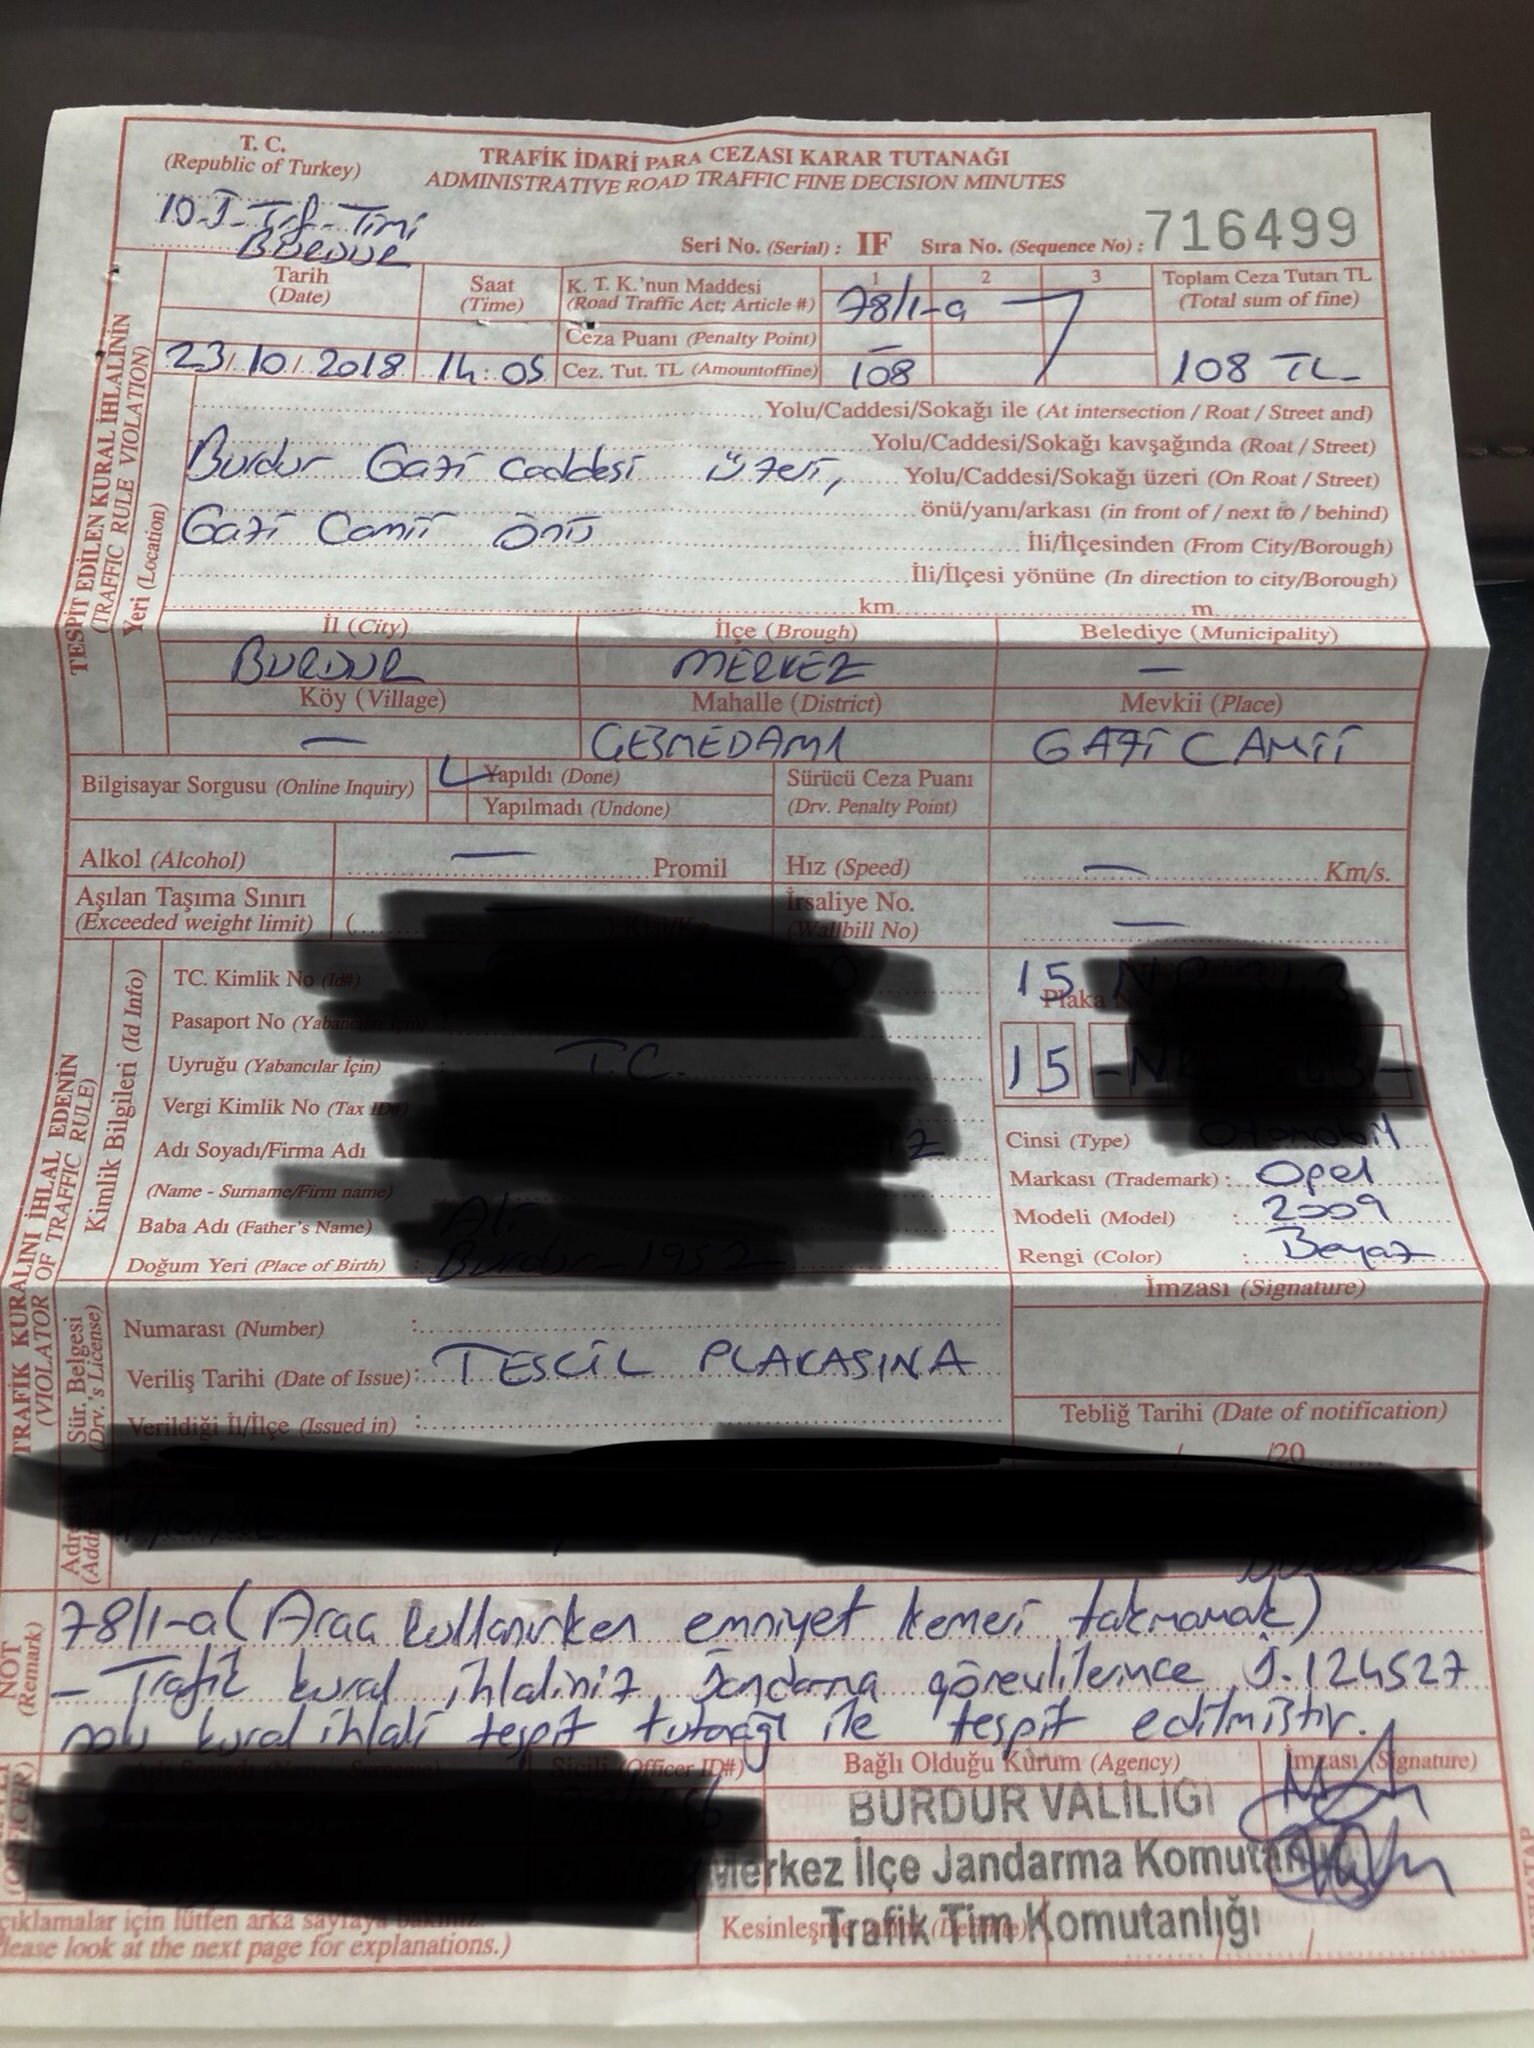 T. C.
(Republic of Turkey)
TRAFİK İDARİ PARA CEZASI KARAR TUTANAĞI
ADMINISTRATIVE ROAD TRAFFIC FINE DECISION MINUTES
10-J-Trf-Timi
BURDUR
Seri No. (Serial) : IF Sıra No. (Sequence No) : 716499
TESPİT EDİLEN KURAL İHLALİNİN
(TRAFFIC RULE VIOLATION)
Tarih
(Date)
Saat
(Time)
K. T. K.'nun Maddesi
(Road Traffic Act; Article #)
1 2 3
78/1-a
Toplam Ceza Tutarı TL
(Total sum of fine)
Ceza Puanı (Penalty Point) —
23/10/2018 14:05 Cez. Tut. TL (Amountoffine) 108 108 TL
Yeri (Location)
Yolu/Caddesi/Sokağı ile (At intersection / Roat / Street and)
Yolu/Caddesi/Sokağı kavşağında (Roat / Street)
Burdur Gazi Caddesi üzeri, Yolu/Caddesi/Sokağı üzeri (On Roat / Street)
Gazi Camii Önü önü/yanı/arkası (in front of / next to / behind)
İli/İlçesinden (From City/Borough)
İli/İlçesi yönüne (In direction to city/Borough)
km m
İl (City) İlçe (Brough) Belediye (Municipality)
BURDUR MERKEZ —
Köy (Village) Mahalle (District) Mevkii (Place)
— ÇEŞMEDAMI GAZİ CAMİİ
Bilgisayar Sorgusu (Online Inquiry) Yapıldı (Done)
Yapılmadı (Undone)
Sürücü Ceza Puanı
(Drv. Penalty Point)
Alkol (Alcohol) — Promil Hız (Speed) — Km/s.
Aşılan Taşıma Sınırı
(Exceeded weight limit) (
İrsaliye No.
(Wallbill No) —
TRAFİK KURALINI İHLAL EDENİN
(VIOLATOR OF TRAFFIC RULE)
Kimlik Bilgileri (Id Info)
TC. Kimlik No (Id#)
15
Pasaport No (Yabancılar İçin)
Plaka
Uyruğu (Yabancılar İçin) T.C.
15
Vergi Kimlik No (Tax ID#)
Adı Soyadı/Firma Adı
(Name - Surname/Firm name)
Baba Adı (Father's Name) Ali
Doğum Yeri (Place of Birth) Burdur 1952
Cinsi (Type) Otomobil
Markası (Trademark) : Opel
Modeli (Model) : 2009
Rengi (Color) : Beyaz
İmzası (Signature)
Sür. Belgesi
(Drv.'s License)
Numarası (Number) :
Veriliş Tarihi (Date of Issue) : TESCİL PLAKASINA
Verildiği İl/İlçe (Issued in) :
Tebliğ Tarihi (Date of notification)
/ /20
NOT
(Remark)
78/1-a (Araç kullanırken emniyet kemeri takmamak)
- Trafik kural ihlaliniz, Jandarma görevlilerince J-124527
nolu kural ihlali tespit tutanağı ile tespit edilmiştir.
Sicili (Officer ID#) Bağlı Olduğu Kurum (Agency) İmzası (Signature)
BURDUR VALİLİĞİ
Merkez İlçe Jandarma Komutanlığı
Trafik Tim Komutanlığı
çıklamalar için lütfen arka sayfaya bakınız.
lease look at the next page for explanations.)